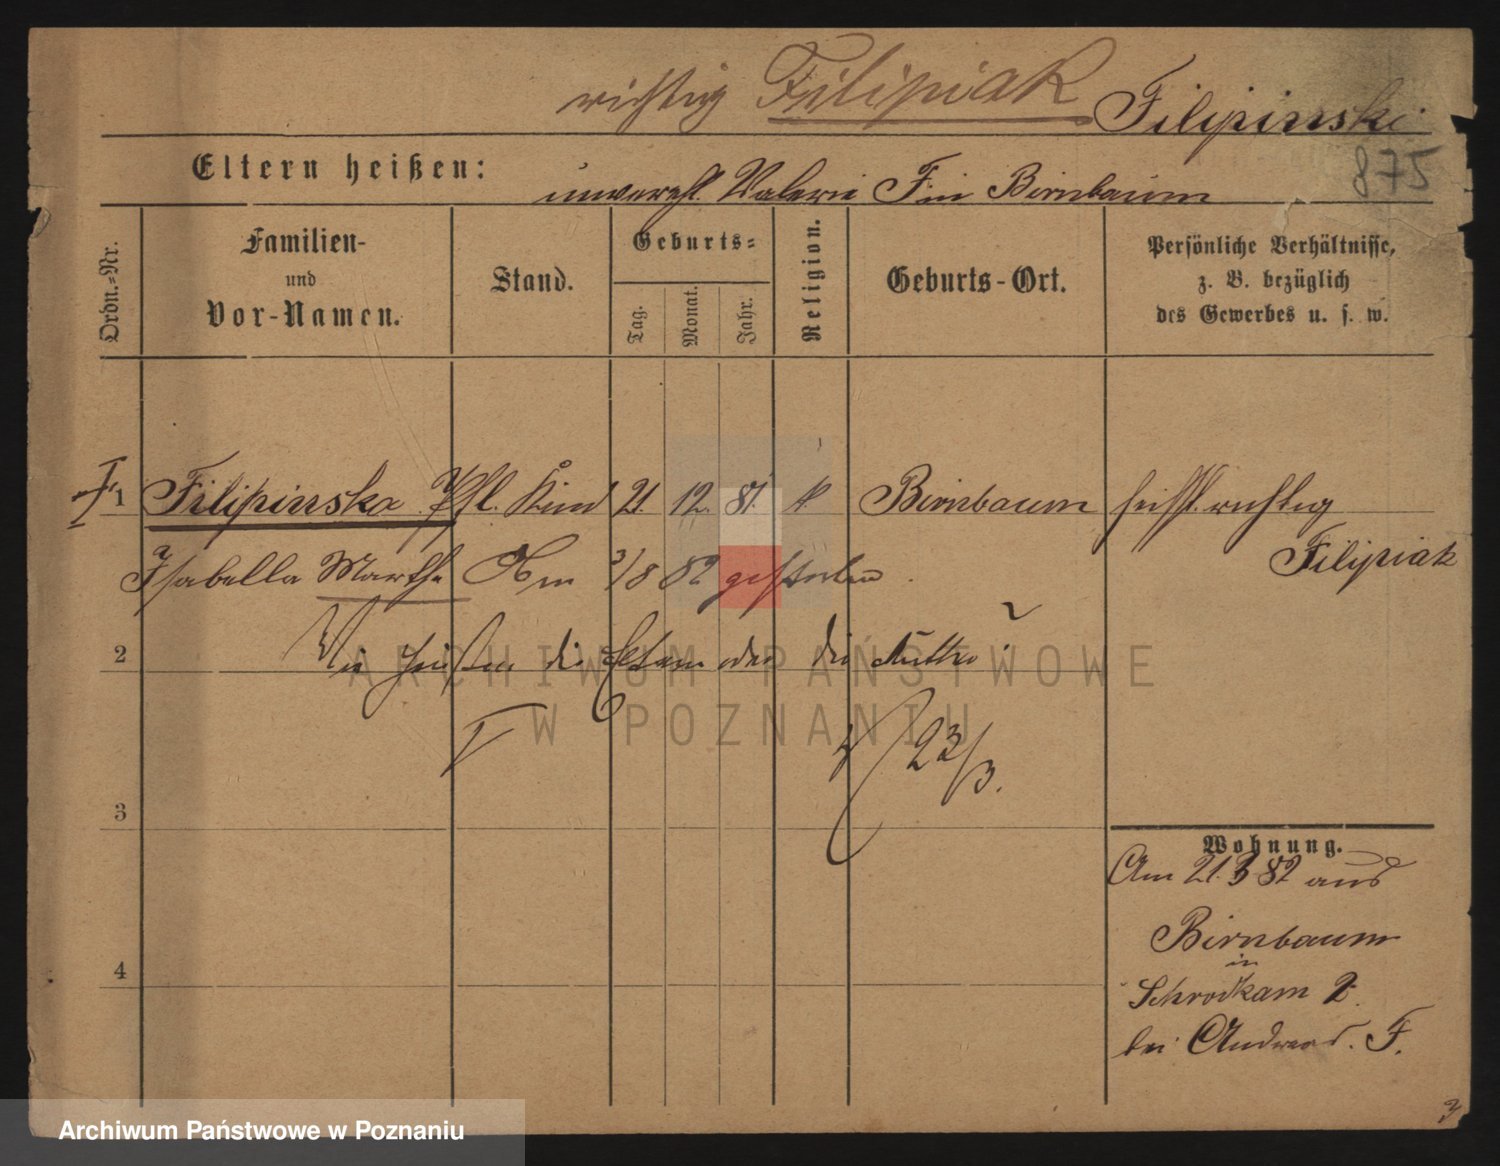 richtig Filipiak Filipinski
875
Eltern heißen: unverehl. Valerie F in Birnbaum
Ordn.-Nr.
Familien-
und
Vor-Namen.
Stand.
Geburts-
Tag.
Monat.
Jahr.
Religion.
Geburts-Ort.
Persönliche Verhältnisse,
z. B. bezüglich
des Gewerbes u. s. w.
1 Filipinska Pfl. Kind 21 12. 81. k Birnbaum heißt richtig
Filipiak
Isabella Martha Am 3/8 82 gestorben.
2 Wie heißen die Eltern oder die Mutter?
23/3.
3
Wohnung.
Am 21. 3 82 aus
Birnbaum
in
Schrodkam 2.
bei Andreas. F.
4
ARCHIWUM PAŃSTWOWE
W POZNANIU
Archiwum Państwowe w Poznaniu